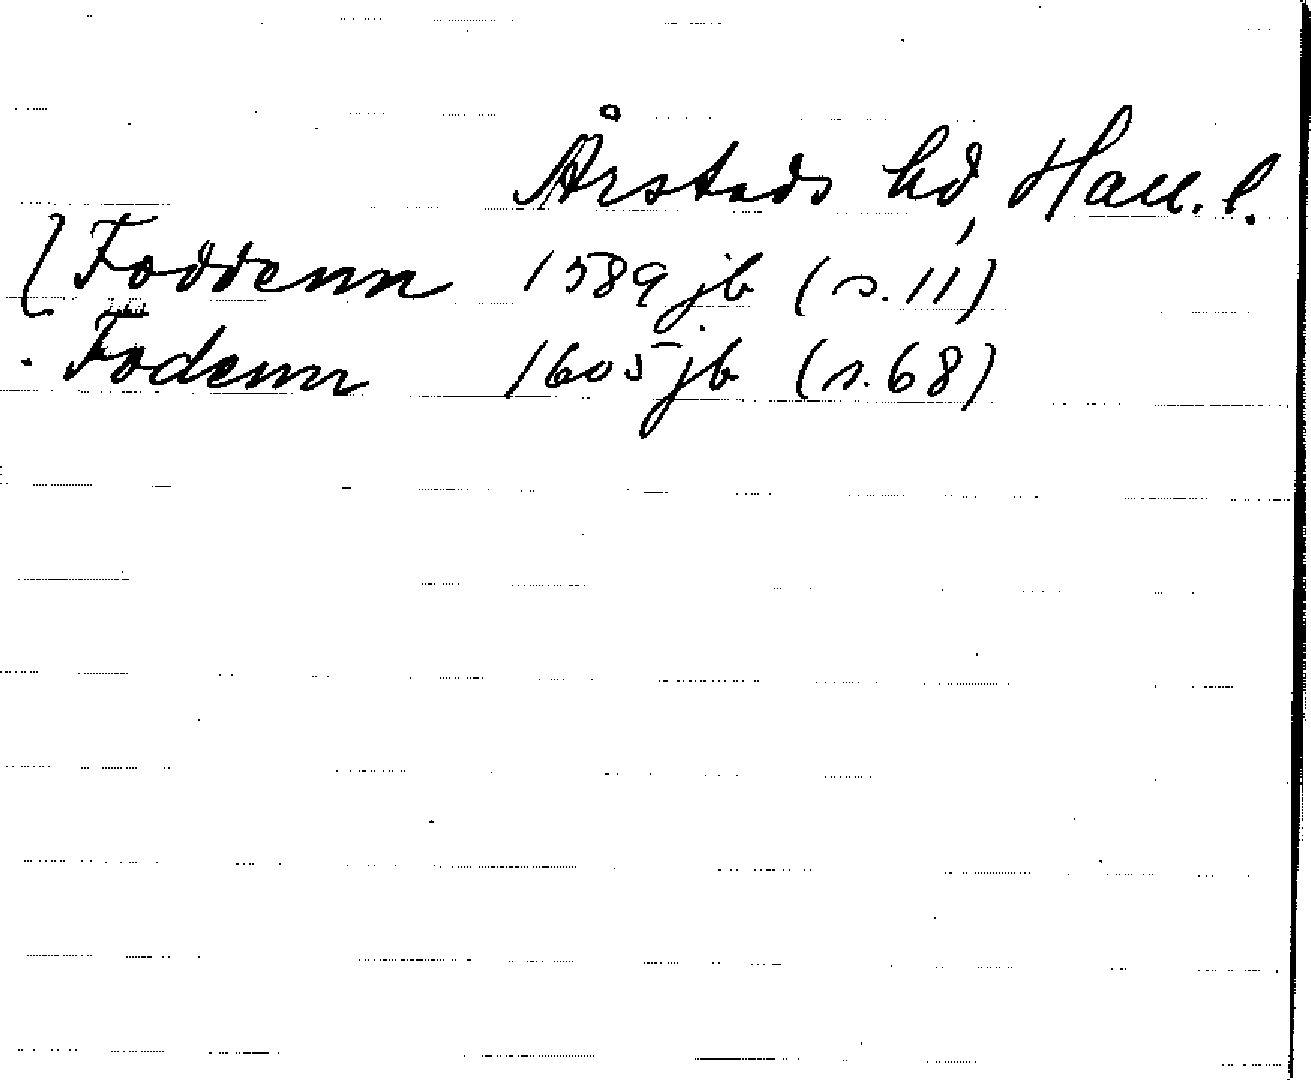 Årstads hd, Hall. l.
[Foddenn 1589 jb (s. 11)
. Fodenn 1605 jb (s. 68)